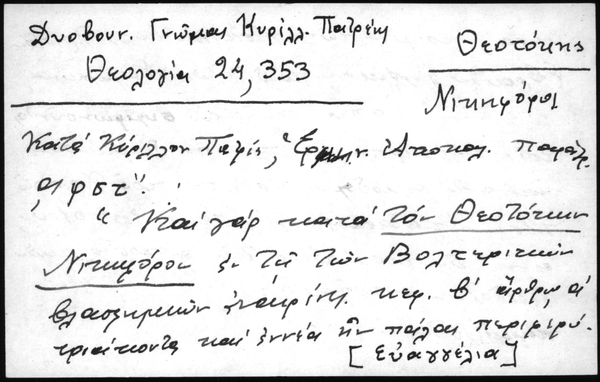 Δυοβουν. Γνῶμαι Κυρίλλ. Πατρέως
Θεολογία 24, 353
Θεοτόκης
Νικηφόρος
Κατά Κύριλλον Πατρέα, Ἑρμην. Ἀποκαλ.
"Καί γάρ κατά τόν Θεοτόκην
Νικηφόρον ἐν τῇ τῶν Βολτερικῶν
βλασφημιῶν ἀνακρίσει κεφ. β' ἄρθρῳ α'
τριάκοντα καί ἐννέα ἦν πάλαι
[Εὐαγγέλια]